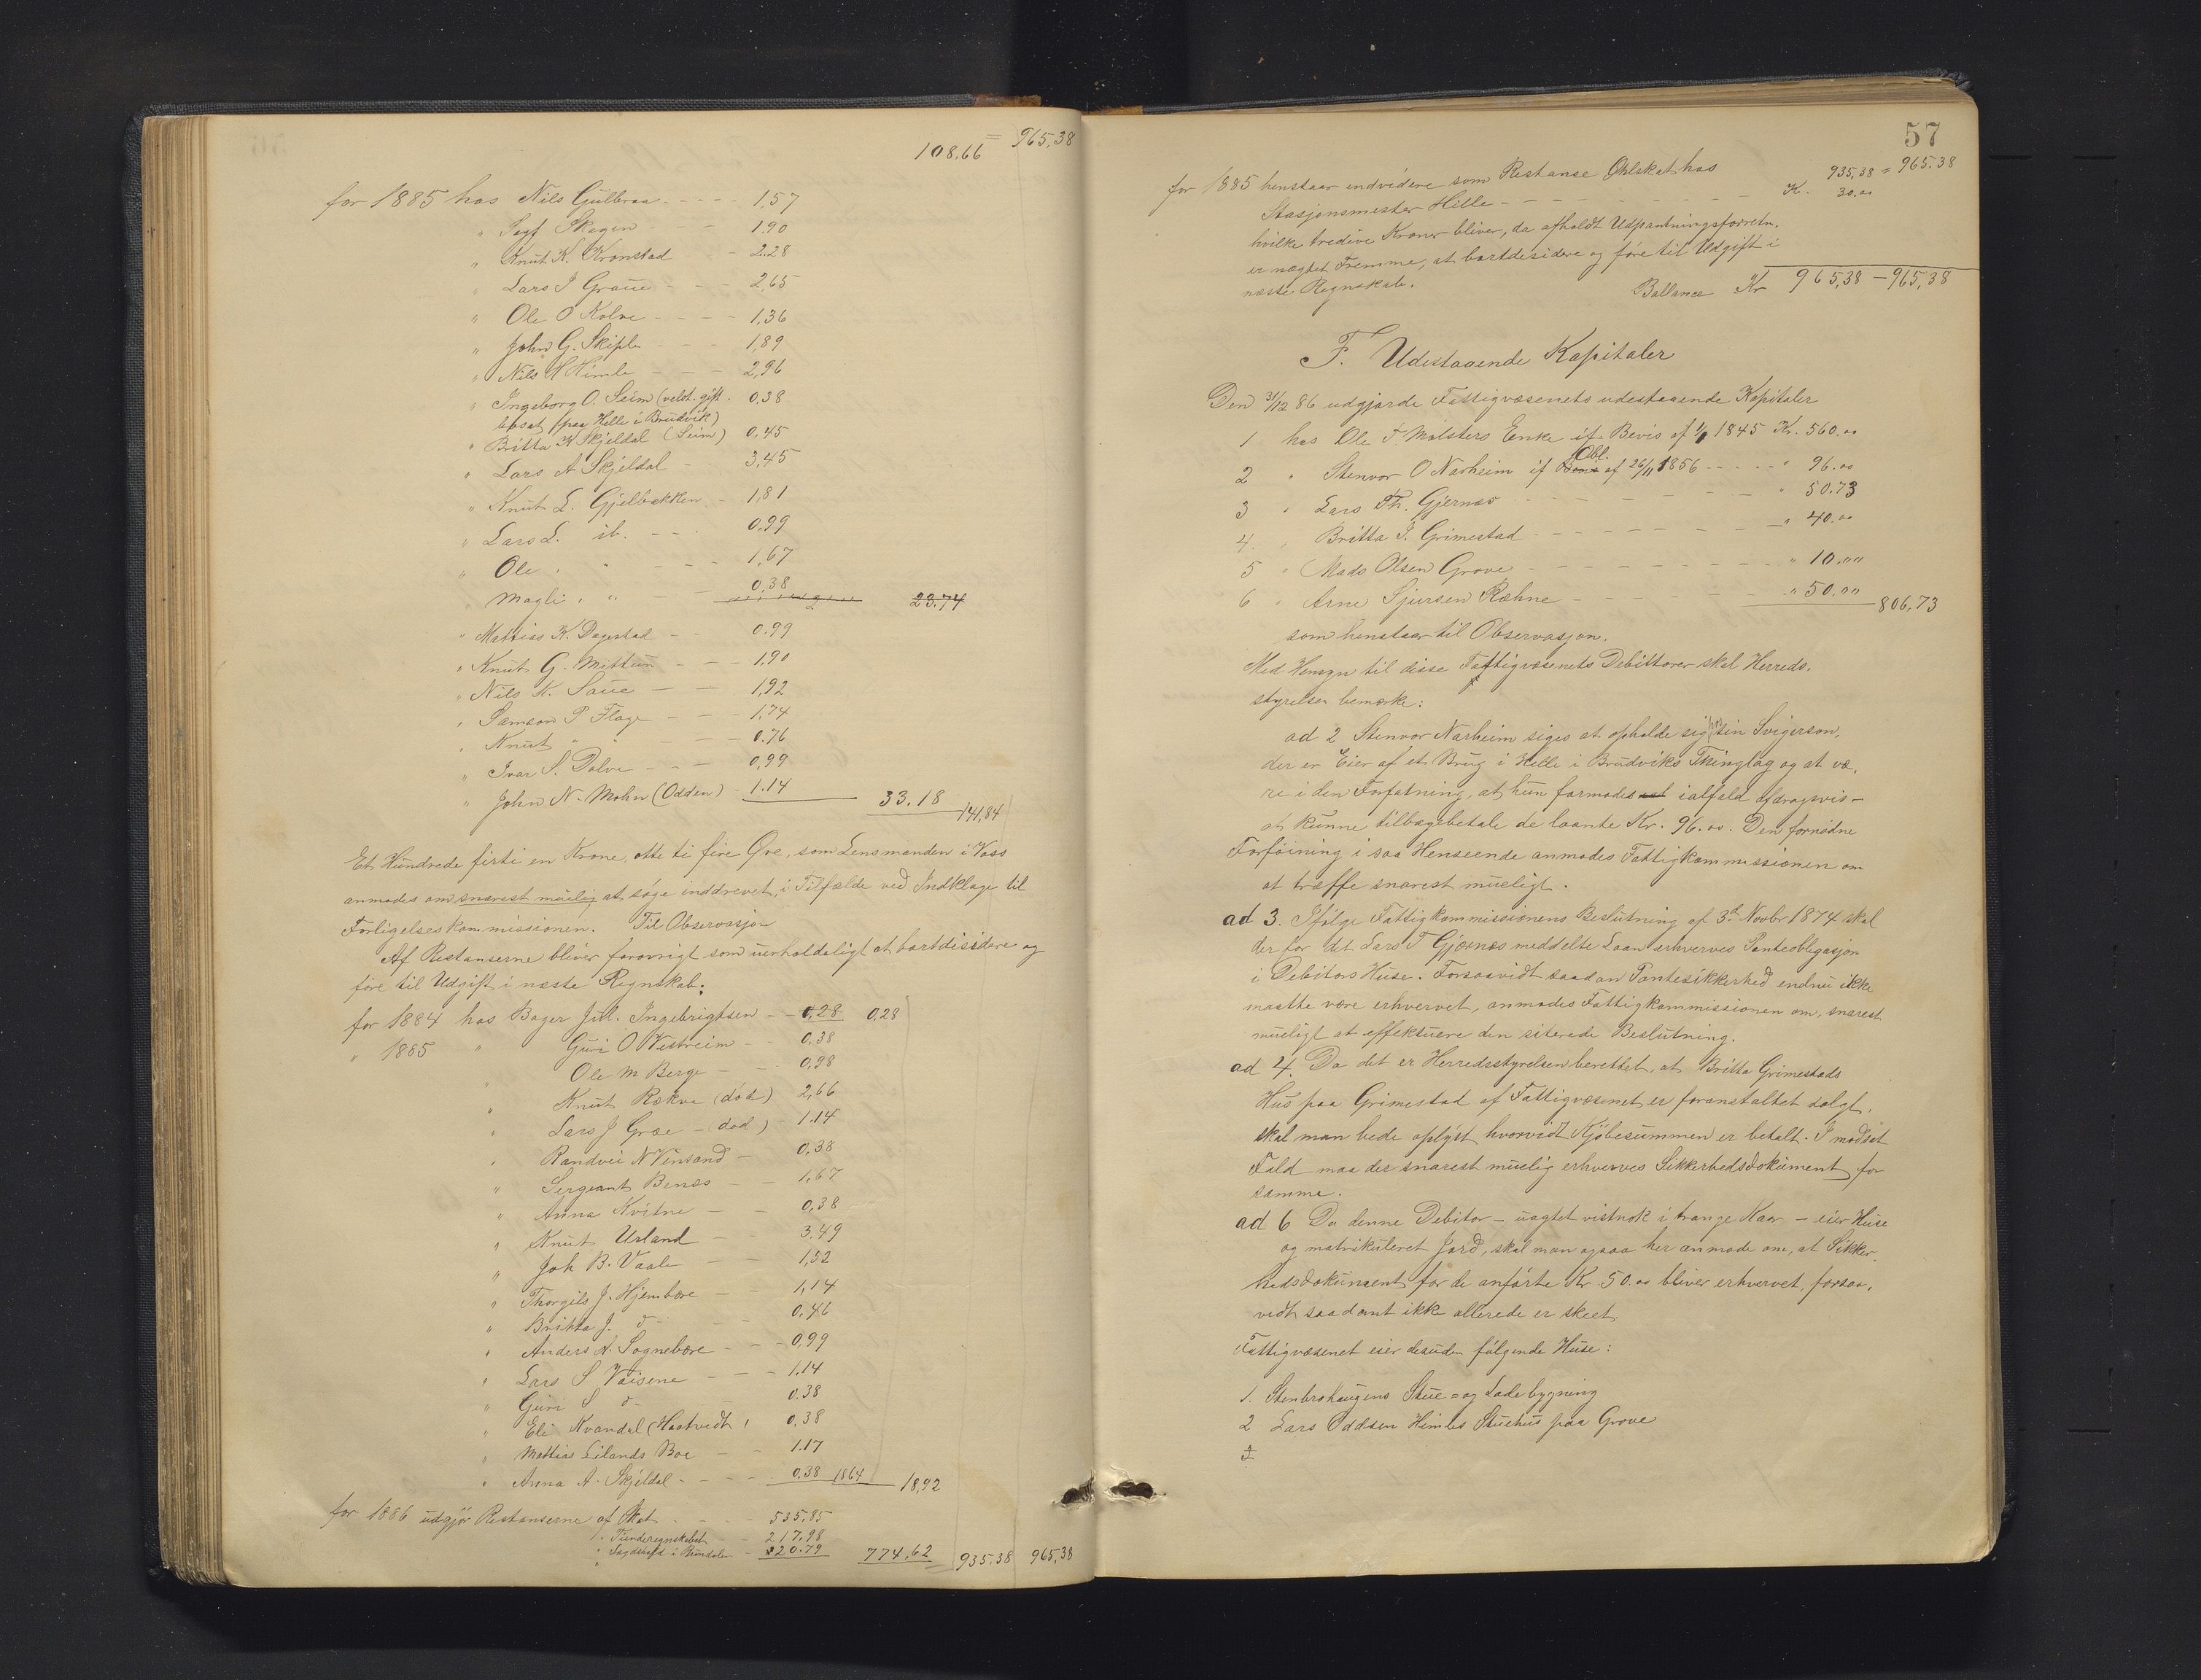 108.66 = 965,38
for 1885 hos Nils Gulbraa - - - - 1,57
" Sagf Skogen - - - 1.90
" Knut K. Kronstad - 2.28
" Lars J Graue - - - 2,65
" Ole O Kolve - - - - 1,36
" John G. Skiple - - - 1,89
" Nils S Himle - - - 2,96
" Ingeborg O. Seim (velst. gift 0.38
bosat paa Helle i Brudvik)
" Britta K Skjeldal (Seim) 0,45
" Lars A Skjeldal - 3,45
" Knut L. Gjelbækken - 1,81
" Lars L. ib. - - - 0.99
" Ole " " - - - 1,67
" Magli " " - - 0.38
23.74
" Mattias K. Dagestad - - 0.99
" Knut G. Mittun - - - 1,90
" Nils K. Saue - - 1,92
" Samson P Flage - - - 1,74
" Knut " " - - - 0.76
" Ivar S. Dolve - - - 0,99
" John N. Mohn (Odden) - 1.14 33.18 141,84
Et Hundrede firti en Krone, otte ti fire Øre, som Lensmanden i Voss
anmodes om snarest muelig at søge inddrevet, i Tilfælde ved Indklage til
Forligelseskommissionen. Til Observasjon
Af Restanserne bliver forøvrigt som uerholdeligt at bortdisidere og
føre til Udgift i næste Regnskab:
for 1884 hos Bager Jul. Ingebrigtsen - - 0,28 0,28
" 1885 " Guri O Vestreim - - 0.38
" Ole M Berge - - 0,98
" Knut Rokve (død) 2,66
" Lars J Græe - (død) - 1.14
" Randvei N Vinsand - 0.38
" Sergeant Benæs - - 1,67
" Anna Kvitne - - 0,38
" Knut Urland - 3.49
" Joh B. Vaale - 1,52
" Thorgils J. Hjembøre - - 1,14
" Britta J. d - - 0,46
" Anders N. Sognebøre - - - 0,99
" Lars S Væisene - - - 1.14
" Guri S d - 0.38
" Eli Kvandal (Haatvedt) 0,38
" Mattias Eilands Boe - - 1.17
" Anna A. Skjeldal - - - - 0,38 1864 18,92
for 1886 udgjør Restanserne af Skat - - - 535.85
" Tunderegnskabet - 217,98
" Sagdskafd i Rundalen - 20.79 774,62 935.38 965,38
57
for 1885 henstaar endvidere som Restanse Øhlskat hos 935,38 = 965.38
Stasjonsmester Hille - - - - - - - - K. 30.00
hvilke tredive Kroner bliver, da afholdt Udpantningsforretn.
er nægtet Fremme, at bortdesidere og føre til Udgift i
næste Regnskab.
Ballance Kr 965,38 - 965,38
F. Udestaaende Kapitaler
Den 31/12 86 udgjorde Fattigvæsenets udestaaende Kapitaler
1 hos Ole T Mølsters Enke if. Bevis af 1845 Kr. 560.00
2 " Stenvor O Narheim if Obl. af 26/11 1856 - - - - " 96.00
3 " Lars Th. Gjernæs - - - - - - " 50.73
4. " Britta I. Grimestad - - - - - - " 40.00
5 " Mads Olsen Grove - - - - - - - " 10,00
6 " Arne Sjursen Ræhne - - - - - " 50.00 806,73
som henstaar til Observasjon.
Med Hensyn til disse Fattigvæsenets Debittorer skal Herreds-
styrelsen bemærke:
ad 2 Stenvor Narheim siges at opholde sig hos sin Svigersøn,
der er Eier af et Brug i Helle i Brudviks Thinglag og at væ-
re i den Forfatning, at hun formodes ialfald afdragsvis
at kunne tilbagebetale de laante Kr. 96.00. Den fornødne
Forføining i saa Henseende anmodes Fattigkommissionen om
at træffe snarest mueligt.
ad 3. Ifølge Fattigkommissionens Beslutning af 3d. Novbr 1874 skal
der for det Lars T Gjærnæs meddelte Laan erhverves Panteobligasjon
i Debitors Huse. Forsaavidt saadan Pantesikkerhed endnu ikke
maatte være erhvervet, anmodes Fattigkommissionen om, snarest
mueligt at effektuere den siterede Beslutning.
ad 4. Da det er Herredsstyrelsen berettet, at Britta Grimestads
Hus paa Grimestad af Fattigvæsenet er foranstaltet solgt,
skal man bede oplyst hvorvidt Kjøbesummen er betalt. I modsat
Fald maa der snarest muelig erhverves Sikkerhedsdokument for
samme.
ad 6 Da denne Debitor - uagtet vistnok i trange Kaar - eier Huse
og matrikuleret Jord, skal man ogsaa her anmode om, at Sikker-
hedsdokument for de anførte Kr. 50.00 bliver erhvervet, forsaa-
vidt saadant ikke allerede er skeet.
Fattigvæsenet eier desuden følgende Huse:
1. Stenbrohaugens Stue= og Ladebygning
2 Lars Oddsen Himles Stuehus paa Grove